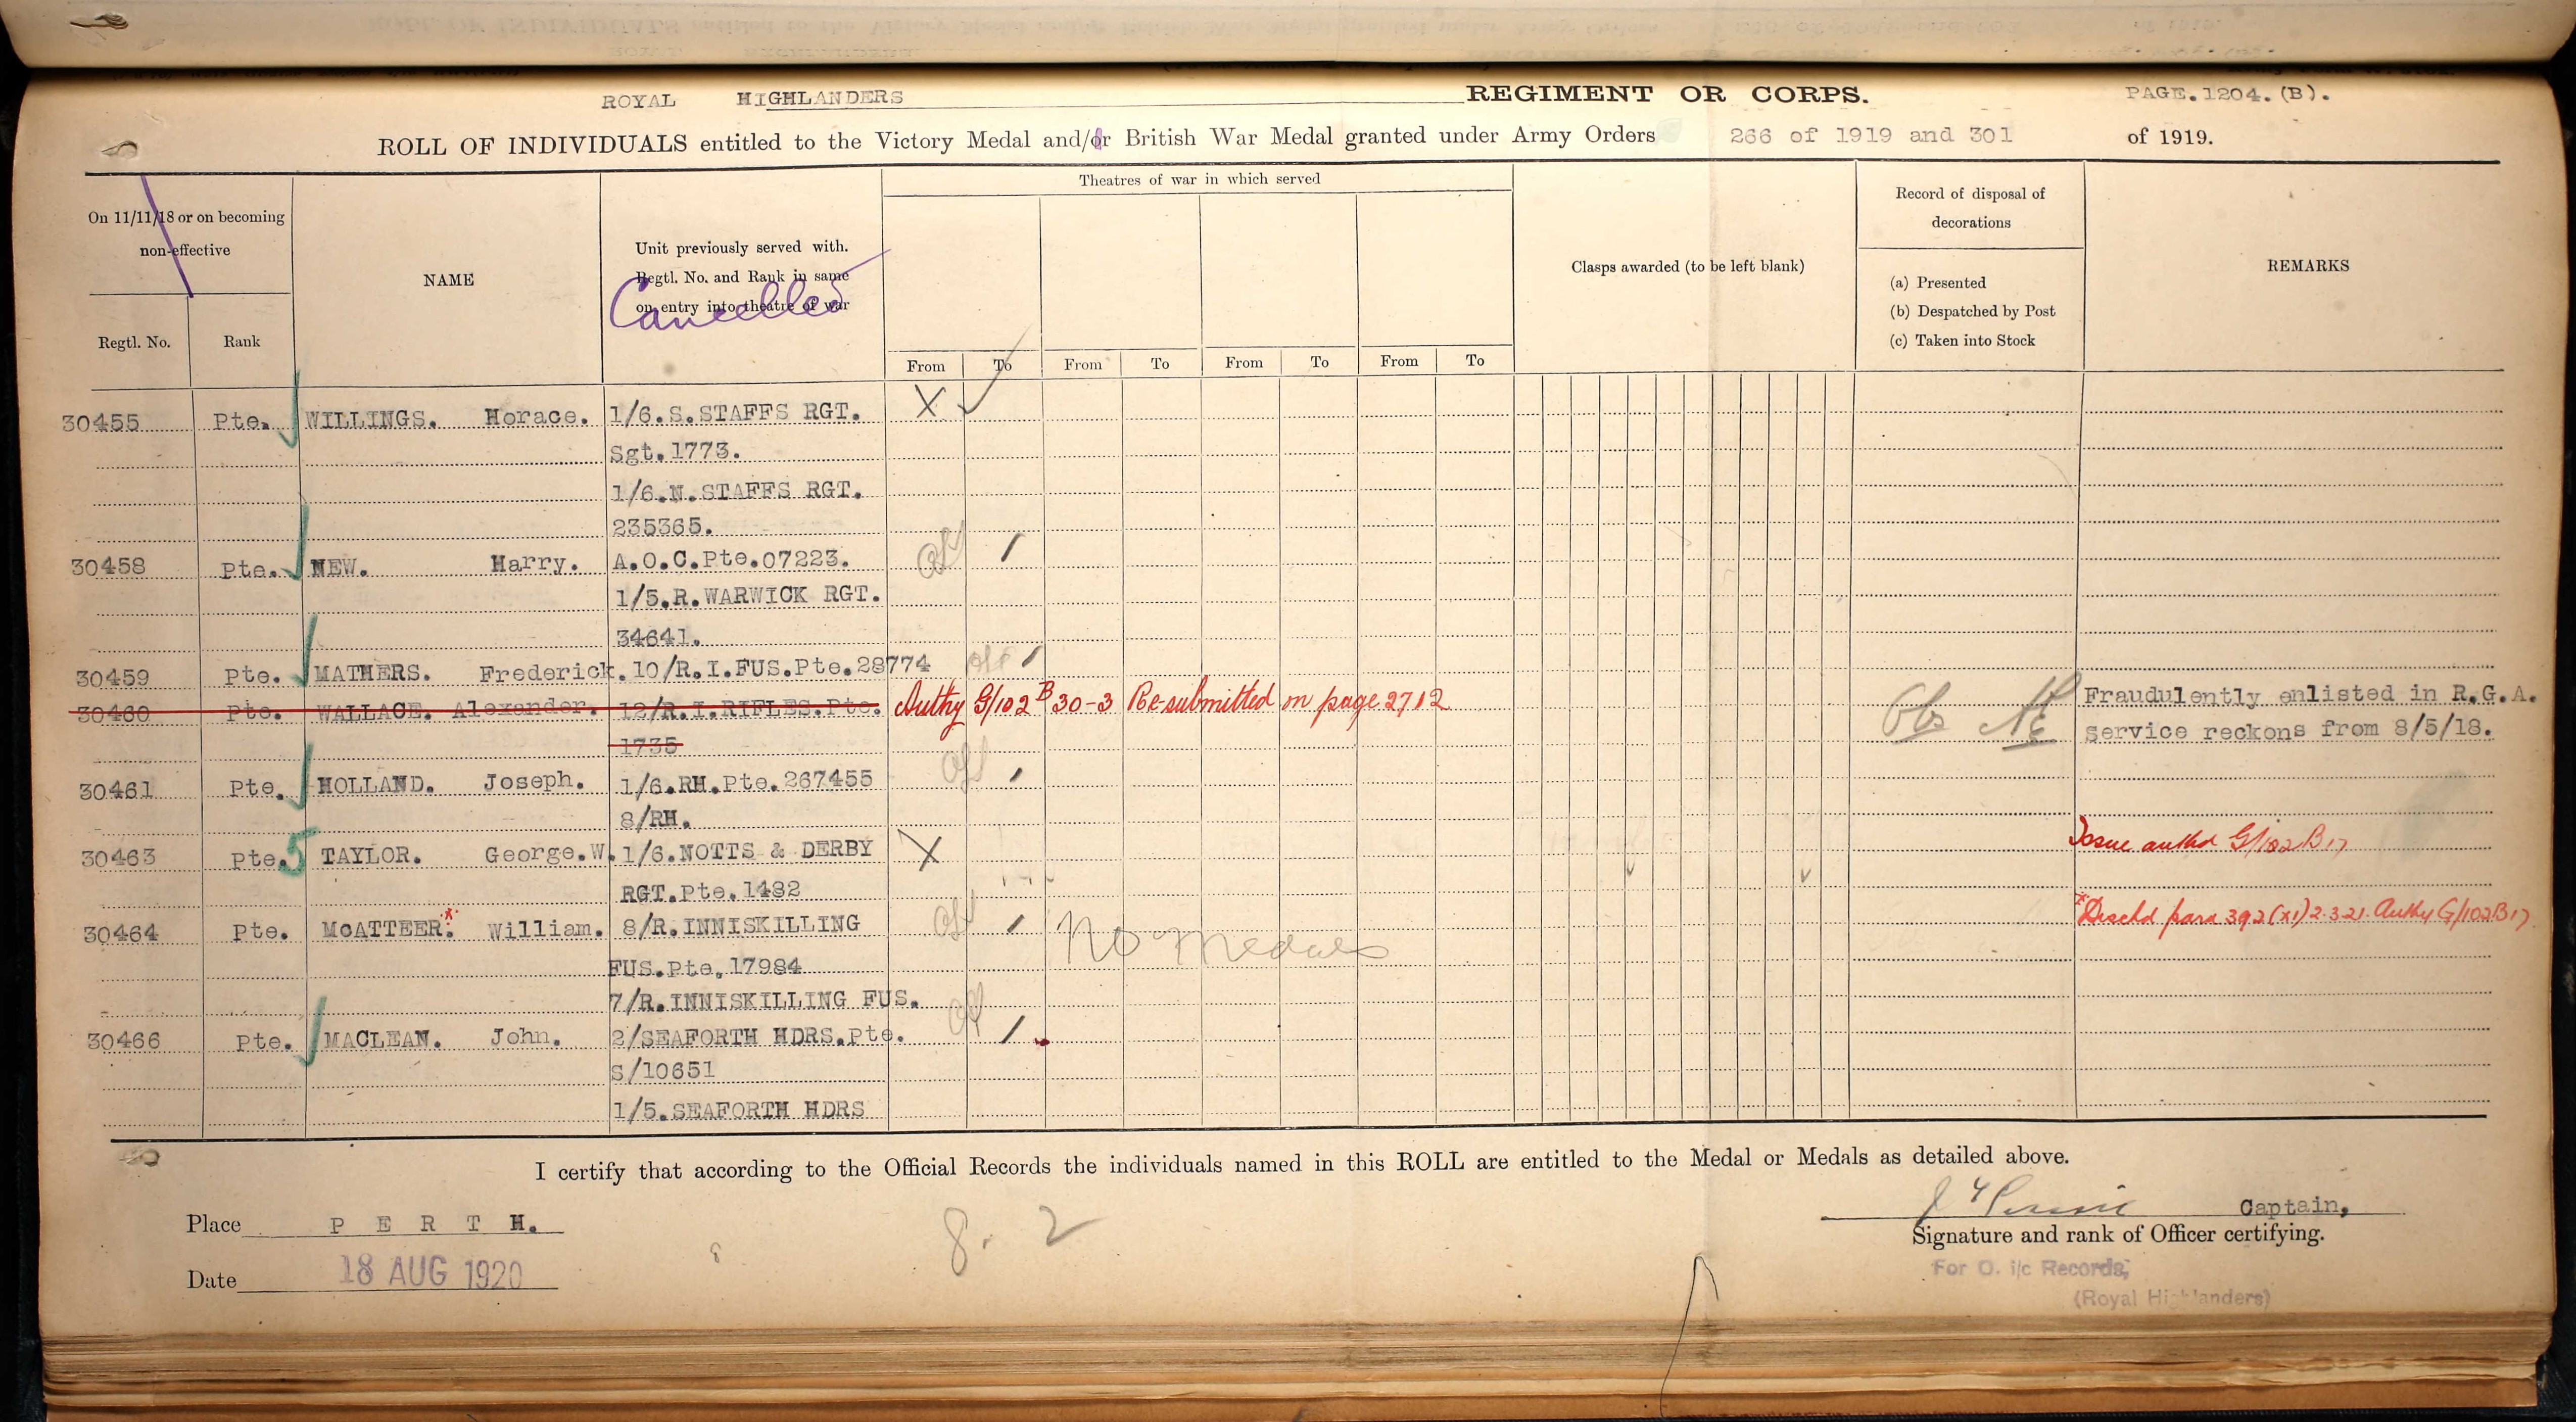 ROYAL HIGHLANDERS REGIMENT OR CORPS. PAGE.1204.(B).
ROLL OF INDIVIDUALS entitled to the Victory Medal and/or British War Medal granted under Army Orders 266 of 1919 and 301 of 1919.
On 11/11/18 or on becoming
non-effective
Regtl. No.
Rank
NAME
Unit previously served with.
Regtl. No. and Rank in same
on entry into theatre of war
Cancelled
Theatres of war in which served
From To From To From To From To
Clasps awarded (to be left blank)
Record of disposal of
decorations
(a) Presented
(b) Despatched by Post
(c) Taken into Stock
REMARKS
30455 Pte. WILLINGS. Horace. 1/6.S.STAFFS RGT. X
Sgt.1773.
1/6.N.STAFFS RGT.
235365.
30458 Pte. NEW. Harry. A.O.C.Pte.07223.
1/5.R.WARWICK RGT.
34641.
30459 Pte. MATHERS. Frederick. 10/R.I.FUS.Pte.28774
30460 Pte. WALLACE. Alexander. 12/R.I.RIFLES.Pte. Authy G/102 B 30-3 Re-submitted on page 2712 Fraudulently enlisted in R.G.A.
1735 service reckons from 8/5/18.
30461 Pte. HOLLAND. Joseph. 1/6.RH.Pte.267455
8/RH.
30463 Pte. 5 TAYLOR. George.W. 1/6.NOTTS & DERBY X Issue authd G/102 B 17
RGT.Pte.1482
30464 Pte. McATTEER.* William. 8/R.INNISKILLING No Medals *Dischd para 392 (XI) 2.3.21. Authy G/102 B 17
FUS.Pte.17984
7/R.INNISKILLING FUS.
30466 Pte. MACLEAN. John. 2/SEAFORTH HDRS.Pte.
S/10651
1/5.SEAFORTH HDRS
I certify that according to the Official Records the individuals named in this ROLL are entitled to the Medal or Medals as detailed above.
Place PERTH.
Date 18 AUG 1920
8. 2
Captain,
Signature and rank of Officer certifying.
For O. i/c Records,
(Royal Highlanders)